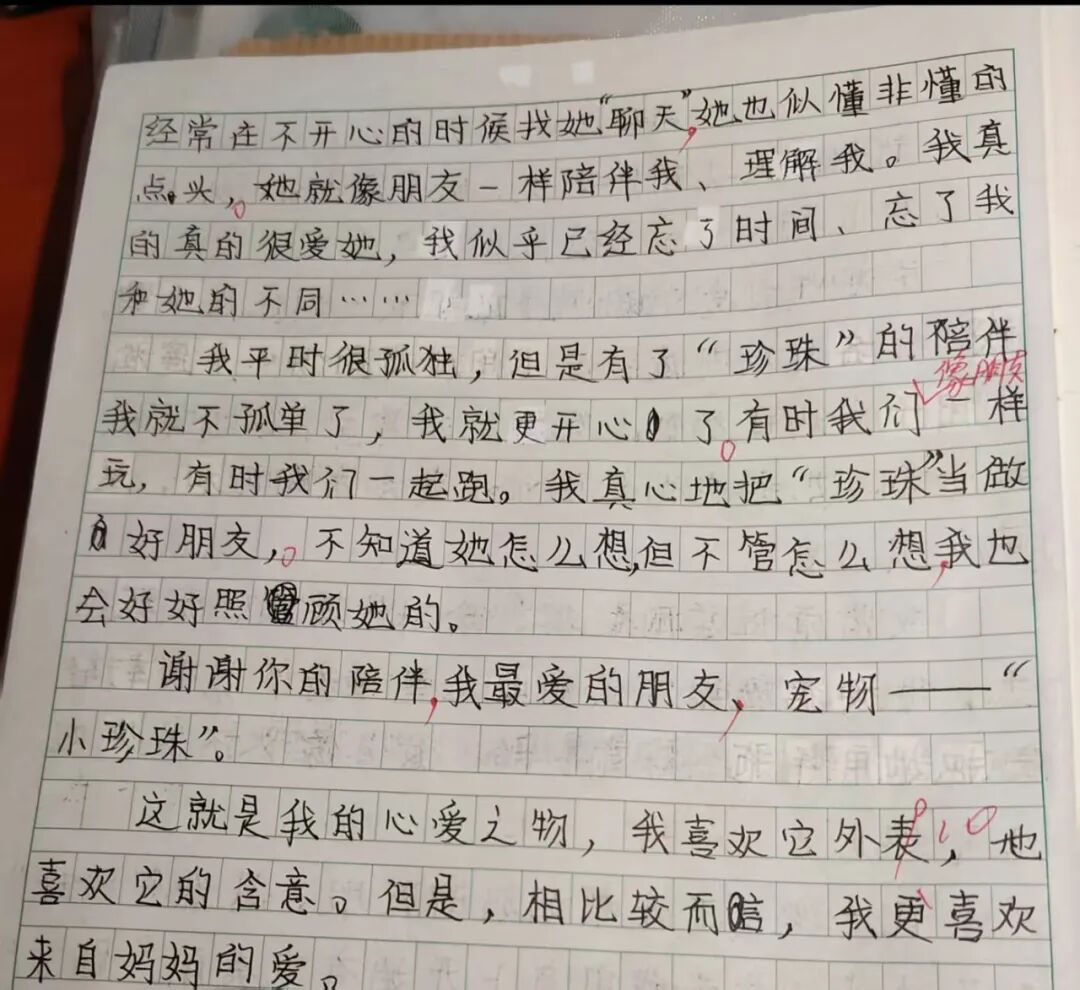 经常在不开心的时候找她“聊天”,她也似懂非懂的
点头,。她就像朋友一样陪伴我、理解我。我真
的真的很爱她,我似乎已经忘了时间、忘了我
和她的不同……
我平时很孤独,但是有了“珍珠”的陪伴
像朋友
我就不孤单了,我就更开心了。有时我们一样
玩,有时我们一起跑。我真心地把“珍珠”当做
好朋友,。不知道她怎么想,但不管怎么想,我也
会好好照顾她的。
谢谢你的陪伴,我最爱的朋友,宠物——“
小珍珠”。
这就是我的心爱之物,我喜欢它外表,也
喜欢它的含意。但是,相比较而言,我更喜欢
来自妈妈的爱。